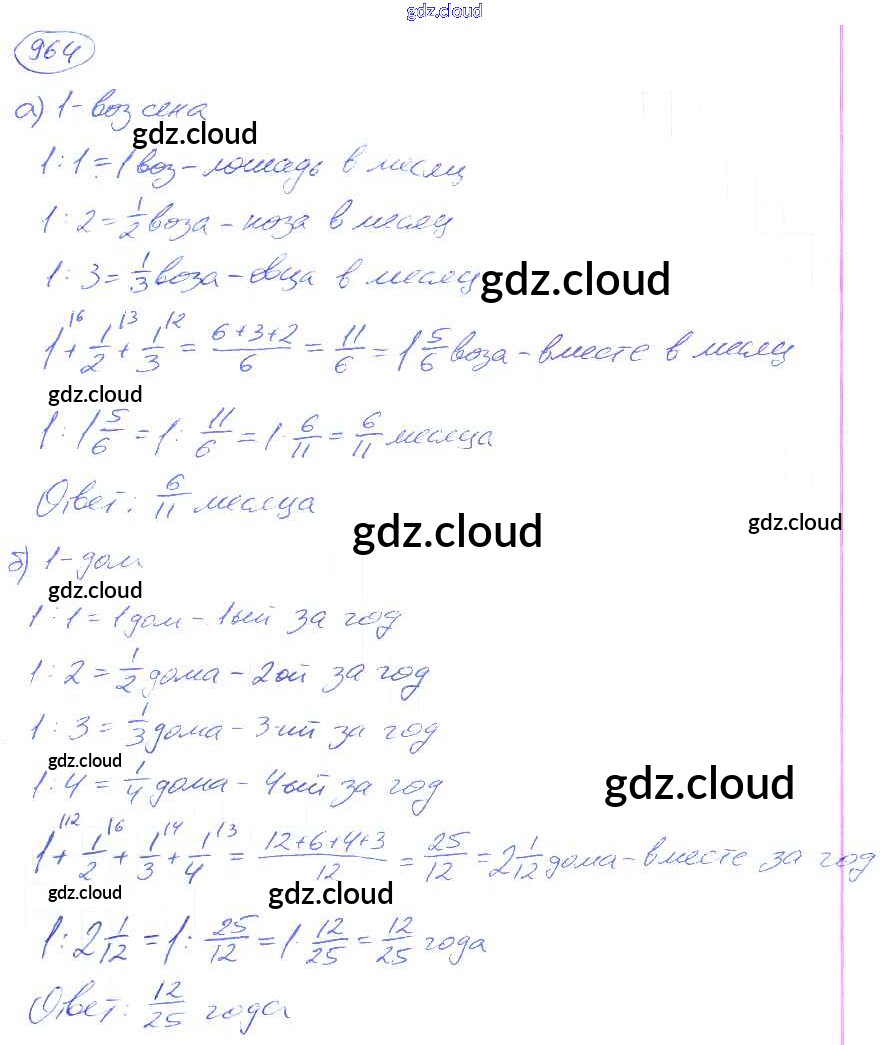 gdz.cloud
964
а) 1 - воз сена
gdz.cloud
1 : 1 = 1 воз - лошадь в месяц
1 : 2 = 1/2 воза - коза в месяц
1 : 3 = 1/3 воза - овца в месяц
gdz.cloud
1 |6 + 1/2 |3 + 1/3 |2 = (6+3+2)/6 = 11/6 = 1 5/6 воза - вместе в месяц
gdz.cloud
1 : 1 5/6 = 1 : 11/6 = 1 · 6/11 = 6/11 месяца
Ответ: 6/11 месяца
gdz.cloud
gdz.cloud
б) 1 - дом
gdz.cloud
1 : 1 = 1 дом - 1ый за год
1 : 2 = 1/2 дома - 2ой за год
1 : 3 = 1/3 дома - 3-ий за год
gdz.cloud
gdz.cloud
1 : 4 = 1/4 дома - 4ый за год
1 |12 + 1/2 |6 + 1/3 |4 + 1/4 |3 = (12+6+4+3)/12 = 25/12 = 2 1/12 дома - вместе за год
gdz.cloud
gdz.cloud
1 : 2 1/12 = 1 : 25/12 = 1 · 12/25 = 12/25 года
Ответ: 12/25 года